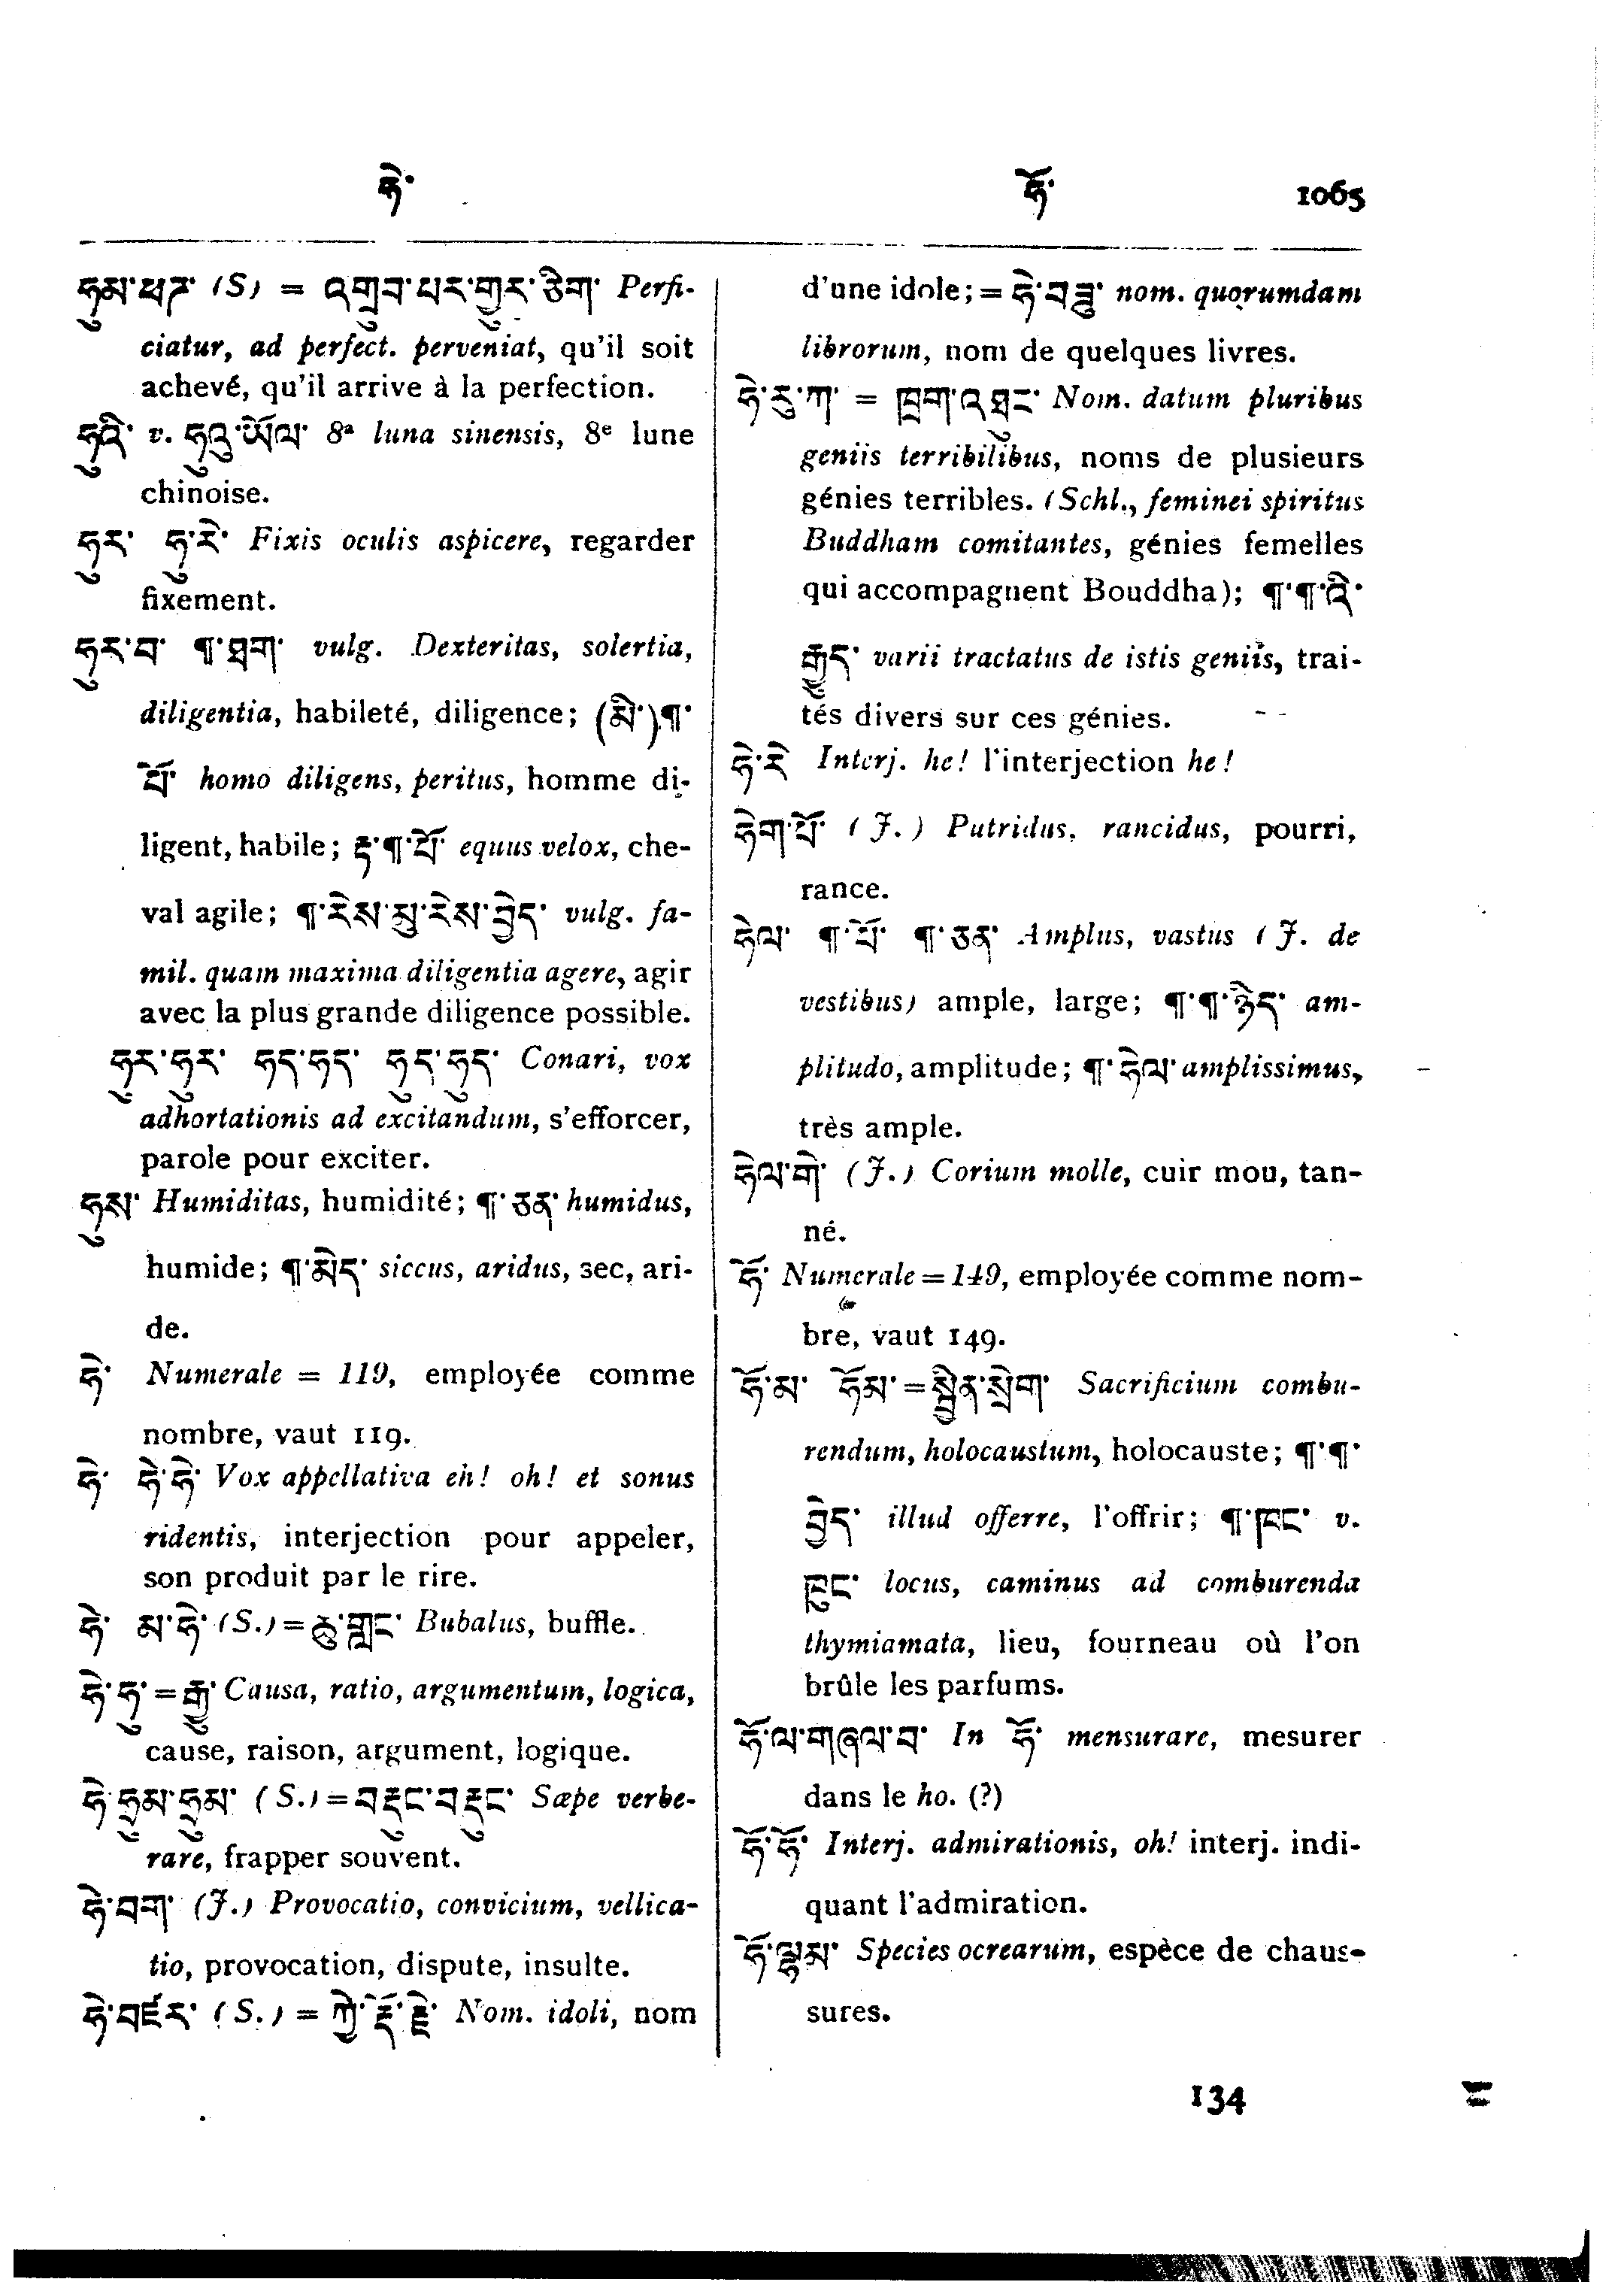 ཧེ་ ཧོ་ 1065
ཧུམ་ཕཊ་ (S) = འགྲུབ་པར་གྱུར་ཅིག་ Perfi-
ciatur, ad perfect. perveniat, qu'il soit
achevé, qu'il arrive à la perfection.
ཧུའི་ v. ཧུའུ་ཡོལ་ 8ª luna sinensis, 8ᵉ lune
chinoise.
ཧུར་ ཧུ་རེ་ Fixis oculis aspicere, regarder
fixement.
ཧུར་བ་ ¶་ཐག་ vulg. Dexteritas, solertia,
diligentia, habileté, diligence; (མི་)¶་
པོ་ homo diligens, peritus, homme di-
ligent, habile; རྟ་¶་པོ་ equus velox, che-
val agile; ¶་རེས་མུ་རེས་བྱེད་ vulg. fa-
mil. quam maxima diligentia agere, agir
avec la plus grande diligence possible.
ཧུར་ཧུར་ ཧད་ཧད་ ཧུད་ཧུད་ Conari, vox
adhortationis ad excitandum, s'efforcer,
parole pour exciter.
ཧུས་ Humiditas, humidité; ¶་ཅན་ humidus,
humide; ¶་མེད་ siccus, aridus, sec, ari-
de.
ཧེ་ Numerale = 119, employée comme
nombre, vaut 119.
ཧེ་ ཧེ་ཧེ་ Vox appellativa eh! oh! et sonus
ridentis, interjection pour appeler,
son produit par le rire.
ཧེ་ མ་ཧེ་ (S.) = ཆུ་གླང་ Bubalus, buffle.
ཧེ་ཏུ་ = རྒྱུ་ Causa, ratio, argumentum, logica,
cause, raison, argument, logique.
ཧེ་ཧྲུམ་ཧྲུམ་ (S.) = བརྡུང་བརྡུང་ Sæpe verbe-
rare, frapper souvent.
ཧེ་བག་ (J.) Provocatio, convicium, vellica-
tio, provocation, dispute, insulte.
ཧེ་བཛར་ (S.) = ཀྱེ་རྡོ་རྗེ་ Nom. idoli, nom
d'une idole; = ཧེ་བཛྲ་ nom. quorumdam
librorum, nom de quelques livres.
ཧེ་རུ་ཀ་ = ཁྲག་འཐུང་ Nom. datum pluribus
geniis terribilibus, noms de plusieurs
génies terribles. (Schl., feminei spiritus
Buddham comitantes, génies femelles
qui accompagnent Bouddha); ¶་¶་འི་
རྒྱུད་ varii tractatus de istis geniis, trai-
tés divers sur ces génies.
ཧེ་རེ Interj. he! l'interjection he!
ཧེག་པོ་ (J.) Putridus, rancidus, pourri,
rance.
ཧེལ་ ¶་པོ་ ¶་ཅན་ Amplus, vastus (J. de
vestibus) ample, large; ¶་¶་ཉིད་ am-
plitudo, amplitude; ¶་ཧེལ་ amplissimus,
très ample.
ཧེལ་གེ་ (J.) Corium molle, cuir mou, tan-
né.
ཧོ་ Numerale = 149, employée comme nom-
bre, vaut 149.
ཧོ་མ་ ཧོམ་ = སྦྱིན་སྲེག་ Sacrificium combu-
rendum, holocaustum, holocauste; ¶་¶་
བྱེད་ illud offerre, l'offrir; ¶་ཁང་ v.
ཁུང་ locus, caminus ad comburenda
thymiamata, lieu, fourneau où l'on
brûle les parfums.
ཧོ་ལ་གཞལ་བ་ In ཧོ་ mensurare, mesurer
dans le ho. (?)
ཧོ་ཧོ་ Interj. admirationis, oh! interj. indi-
quant l'admiration.
ཧོ་ལྷམ་ Species ocrearum, espèce de chaus-
sures.
134